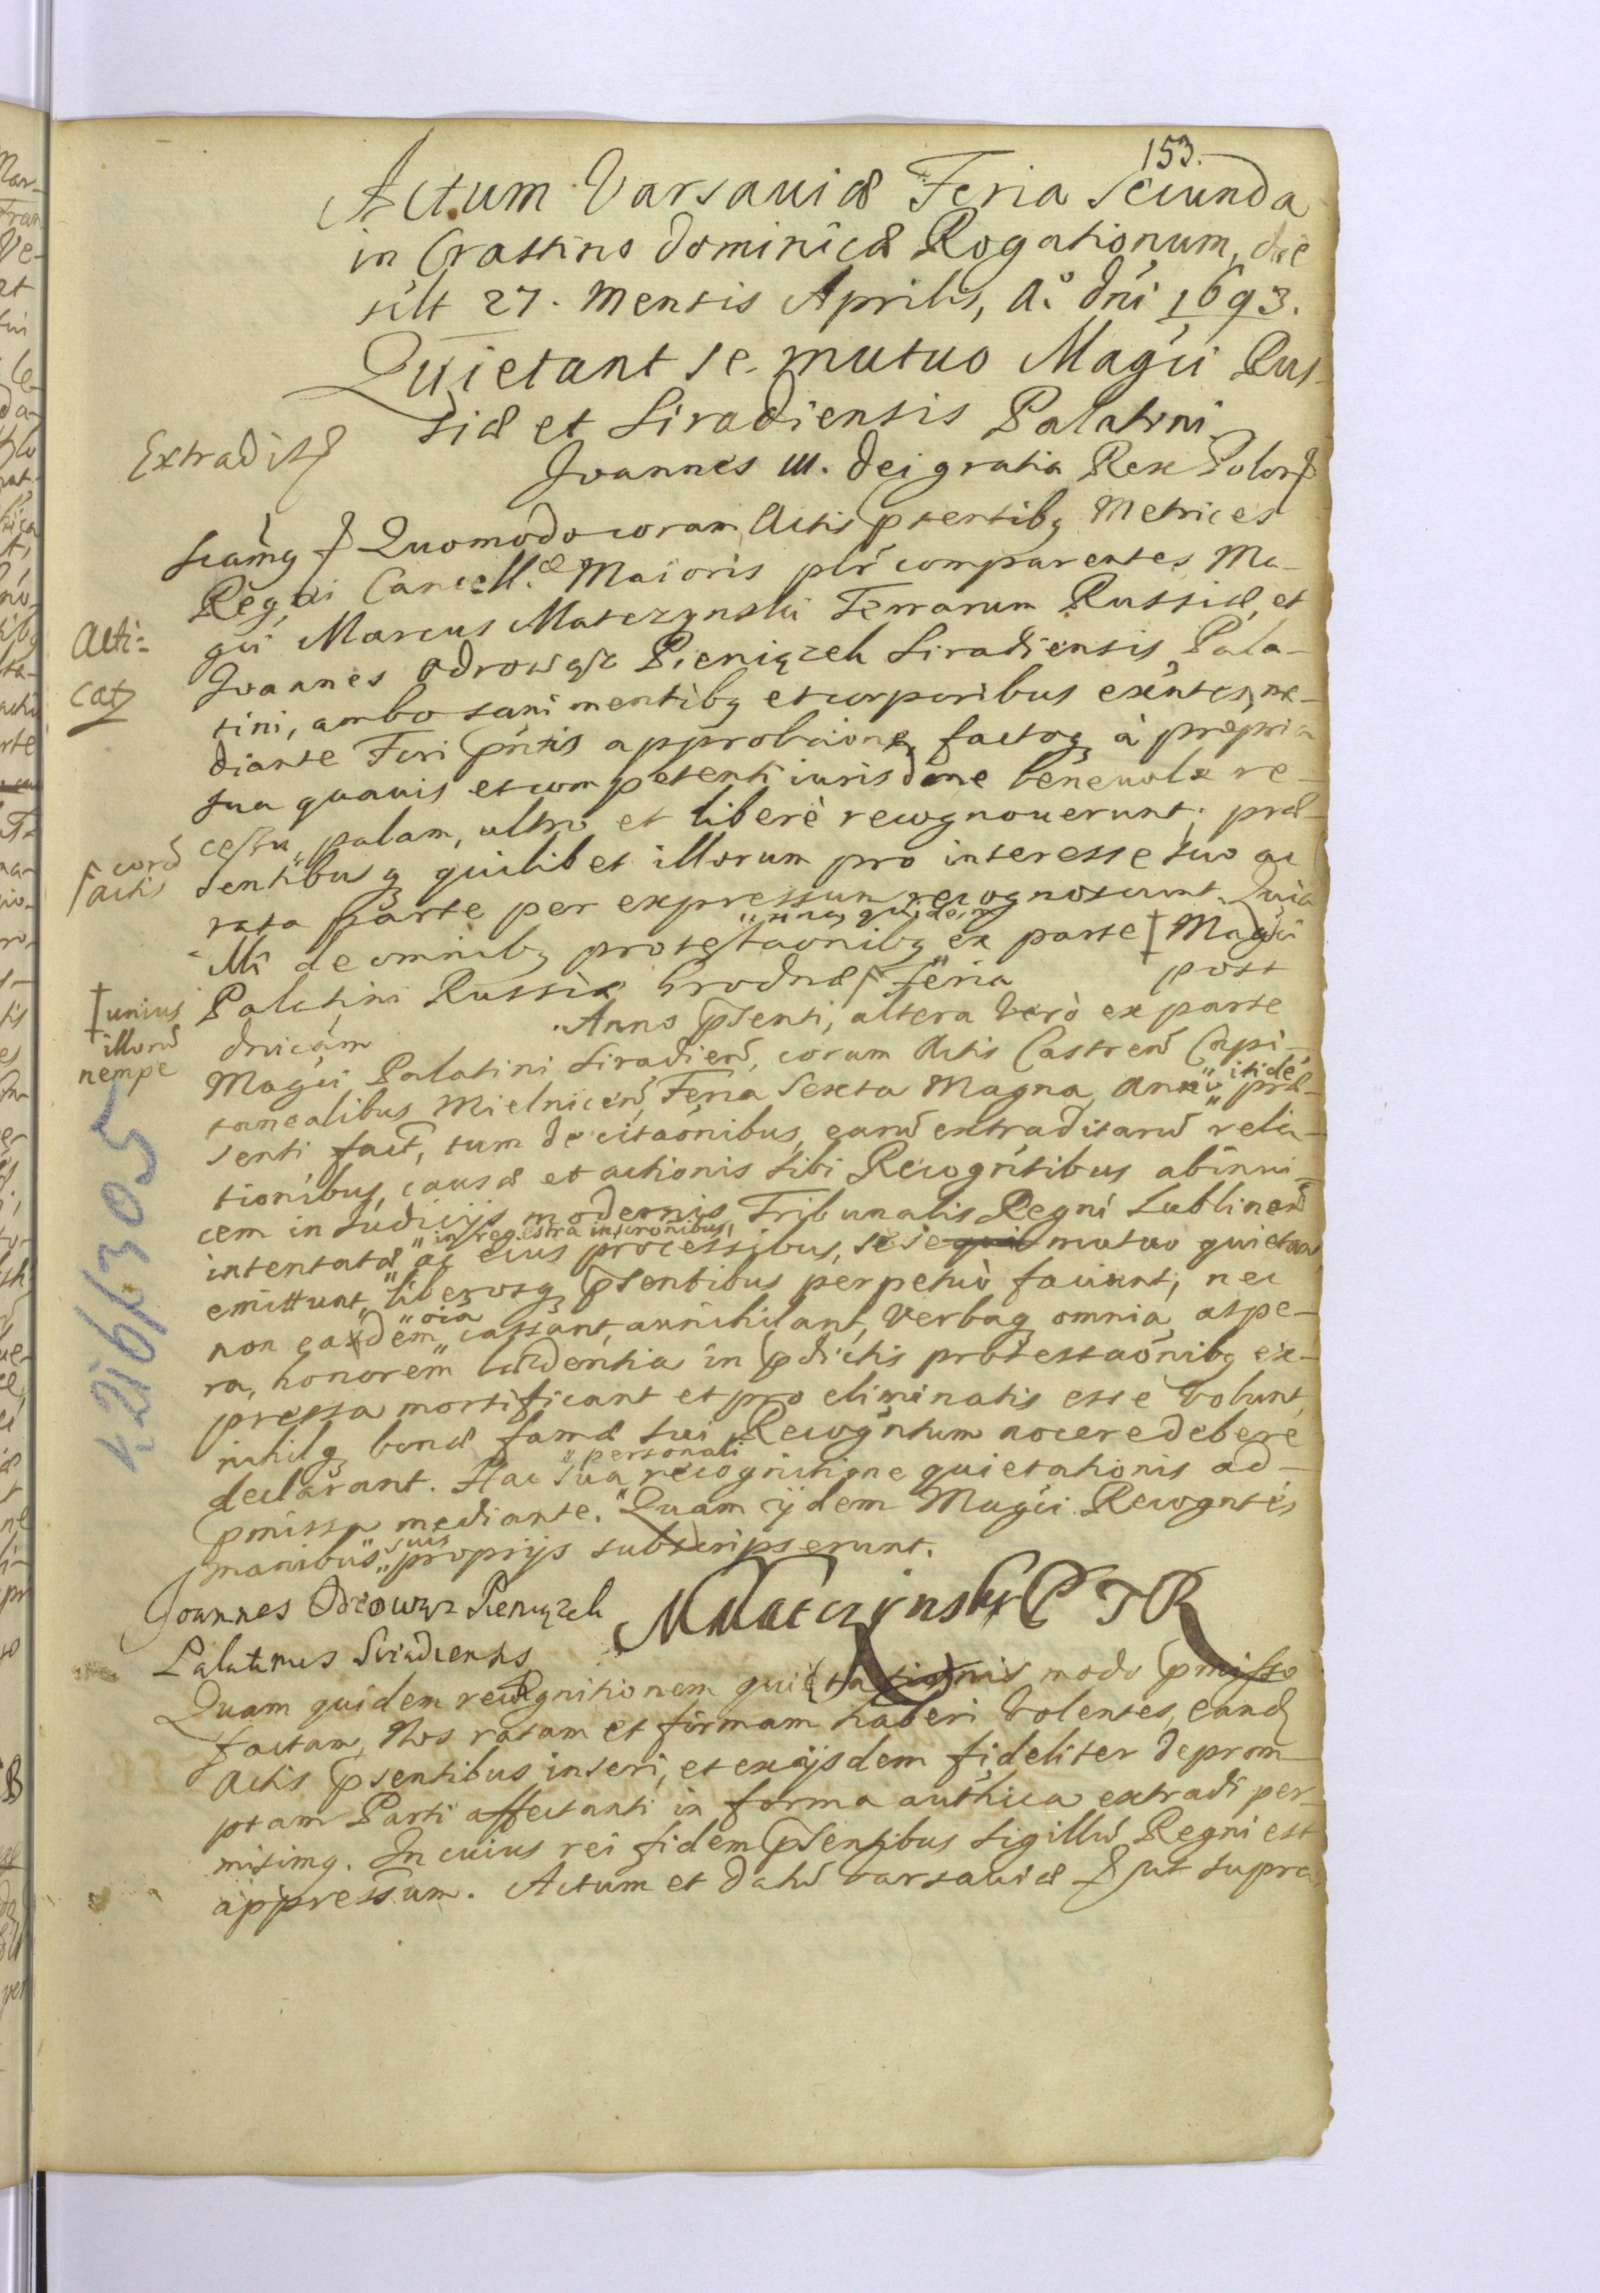 153.
Actum Varsaviæ Feria Secunda
in Crastino Dominicæ Rogationum, die
scilt 27. Mensis Aprilis, A.º dni 1693.
Quietant se mutuo Magci Rus-
siæ et Siradiensis Palatini
Extradit
Joannes III. Dei gratia Rex Polon
Quomodo coram Actis pntibq Metrices
Regni Cancell.æ Maioris plr comparentes Ma-
gci Marcus Matczynski Terrarum Russiæ, et
Acti-
cat
Joannes Odrowąż Pieniążek Siradiensis Pala-
tini, ambo sani mentibq et corporibus existntes, me-
diante Fori pntis approbaone, factoq à propria
sua quavis et competenti iurisdone benevole re-
cessu, palam, ultro et liberè recognoverunt, præ-
corã
actis
sentibusq quilibet illorum pro interesse suo ac
rata parte per expressum recognoscunt. Quia
una quidem
illi de omnibq protestaonibq ex parte † Magci
Palatini Russiæ Grodnæ Feria post
† unius
illorũ
nempe
dnicam Anno psenti, altera verò ex parte
Magci Palatini Siradien, coram Actis Castren Capi-
tanealibus Mielnicen, Feria Sexta Magna, Anno itidẽ præ-
senti fact, tum de citaonibus, earũ extraditarũ rela-
tionibus, causæ et actionis sibi Recogntibus abinvi-
cem in Iudicijs modernis Tribunalis Regni Lublinen
in regestra inscronibus,
intentatæ ac eius processibus, se mutuo quietos
emittunt, liberosq psentibus perpetuò faciunt, nec
oia
non eadem cassant, annihilant, verbaq omnia, aspe-
ra, honorem lædentia in pdictis protestaonibq ex-
pressa mortificant et pro eliminatis esse volunt,
nihilq bonæ famæ sui Recogntum nocere debere
personali
declarant. Hac sua recognitione quietationis ad
pmissa mediante. Quam ijdem Magci Recogntes
suis
manibus proprijs subscripserunt.
Joannes Odrowąz Pieniązek
Palatinus Siradiensis
MMatczynski P T R
Quam quidem recognitionem quietationis modo pmisso
factam, Nos ratam et firmam haberi volentes, eand
Actis psentibus inseri, et ex ijsdem fideliter deprom-
ptam Parti affectanti in forma authica extradi per-
misimq. In cuius rei fidem psentibus sigillũ Regni est
appressum. Actum et Datũ Varsaviæ ut supra